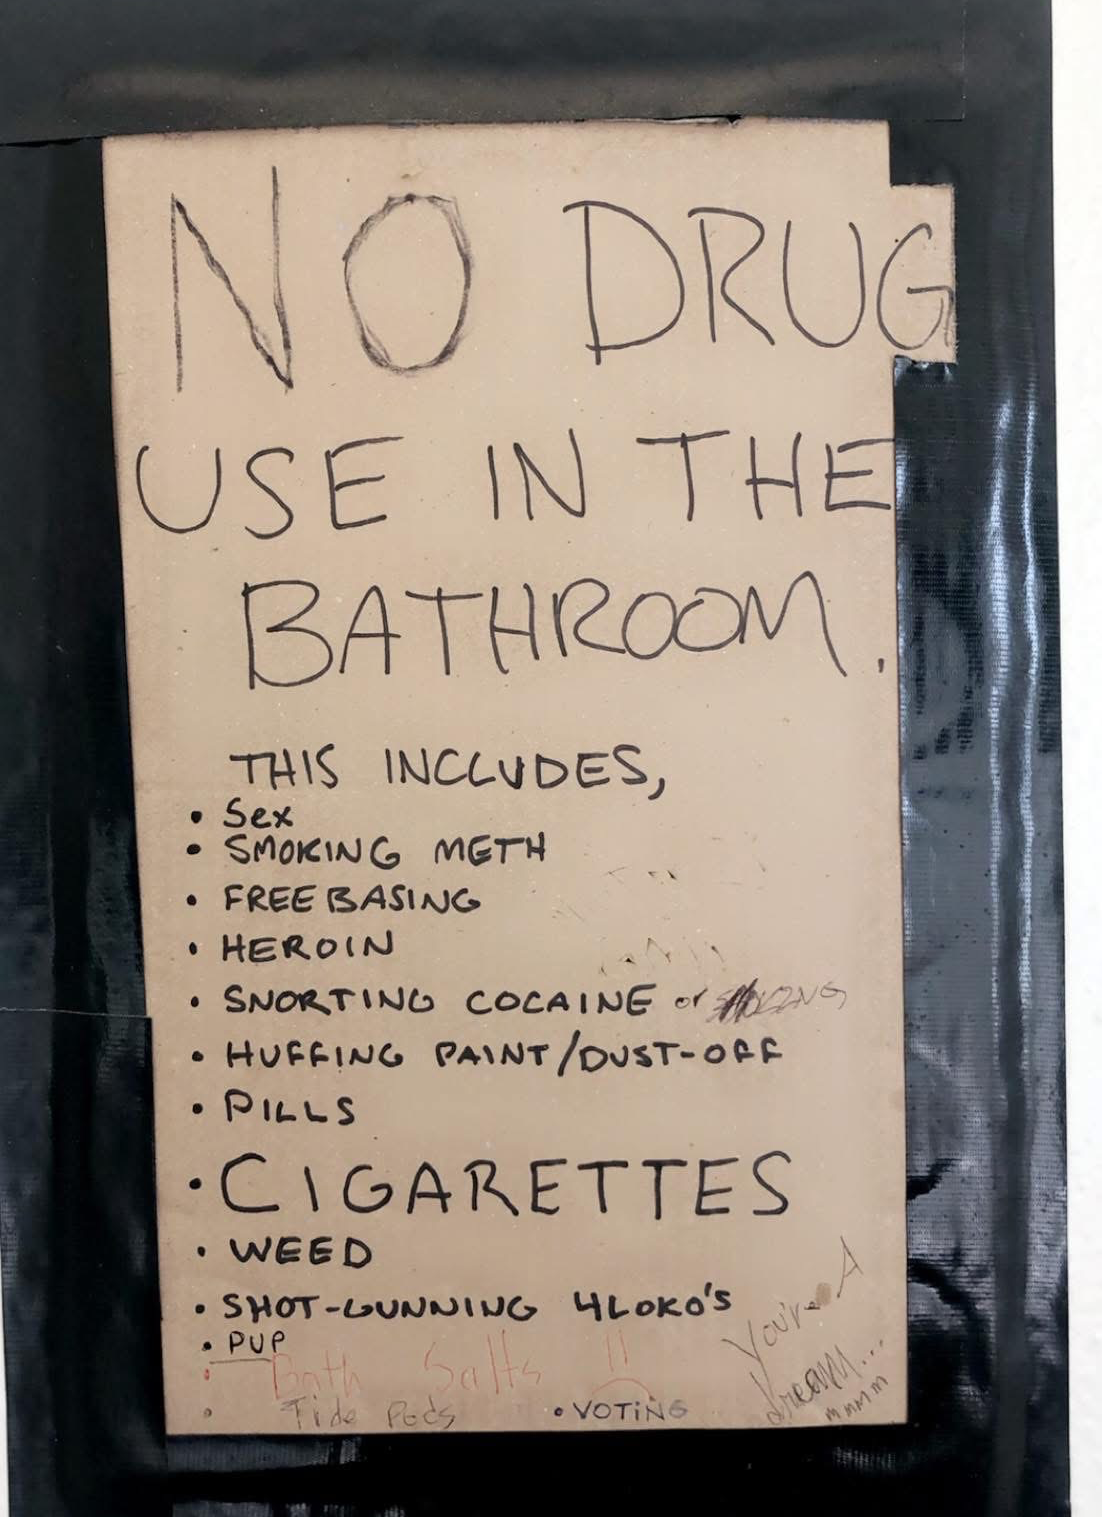 NO DRUG
USE IN THE
BATHROOM.
THIS INCLUDES,
• Sex
• SMOKING METH
• FREEBASING
• HEROIN
• SNORTING COCAINE or SMOKING
• HUFFING PAINT/DUST-OFF
• PILLS
• CIGARETTES
• WEED
• SHOT-GUNNING 4LOKO'S
• PUP
• Bath Salts !!
• Tide Pods
• VOTING
You're A
dream...
mmmm